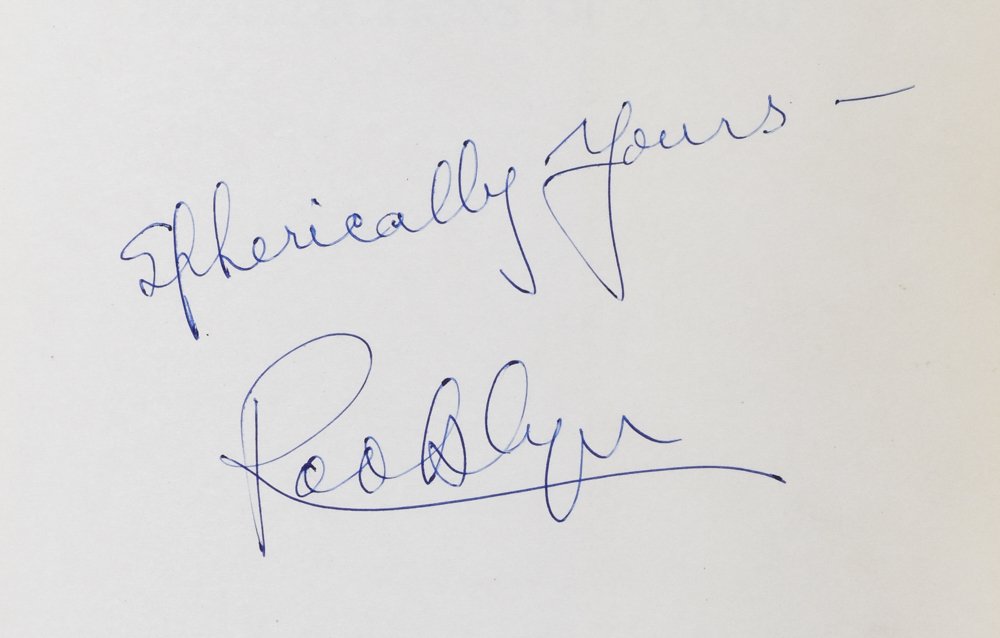 Spherically Yours —
Rooklyn